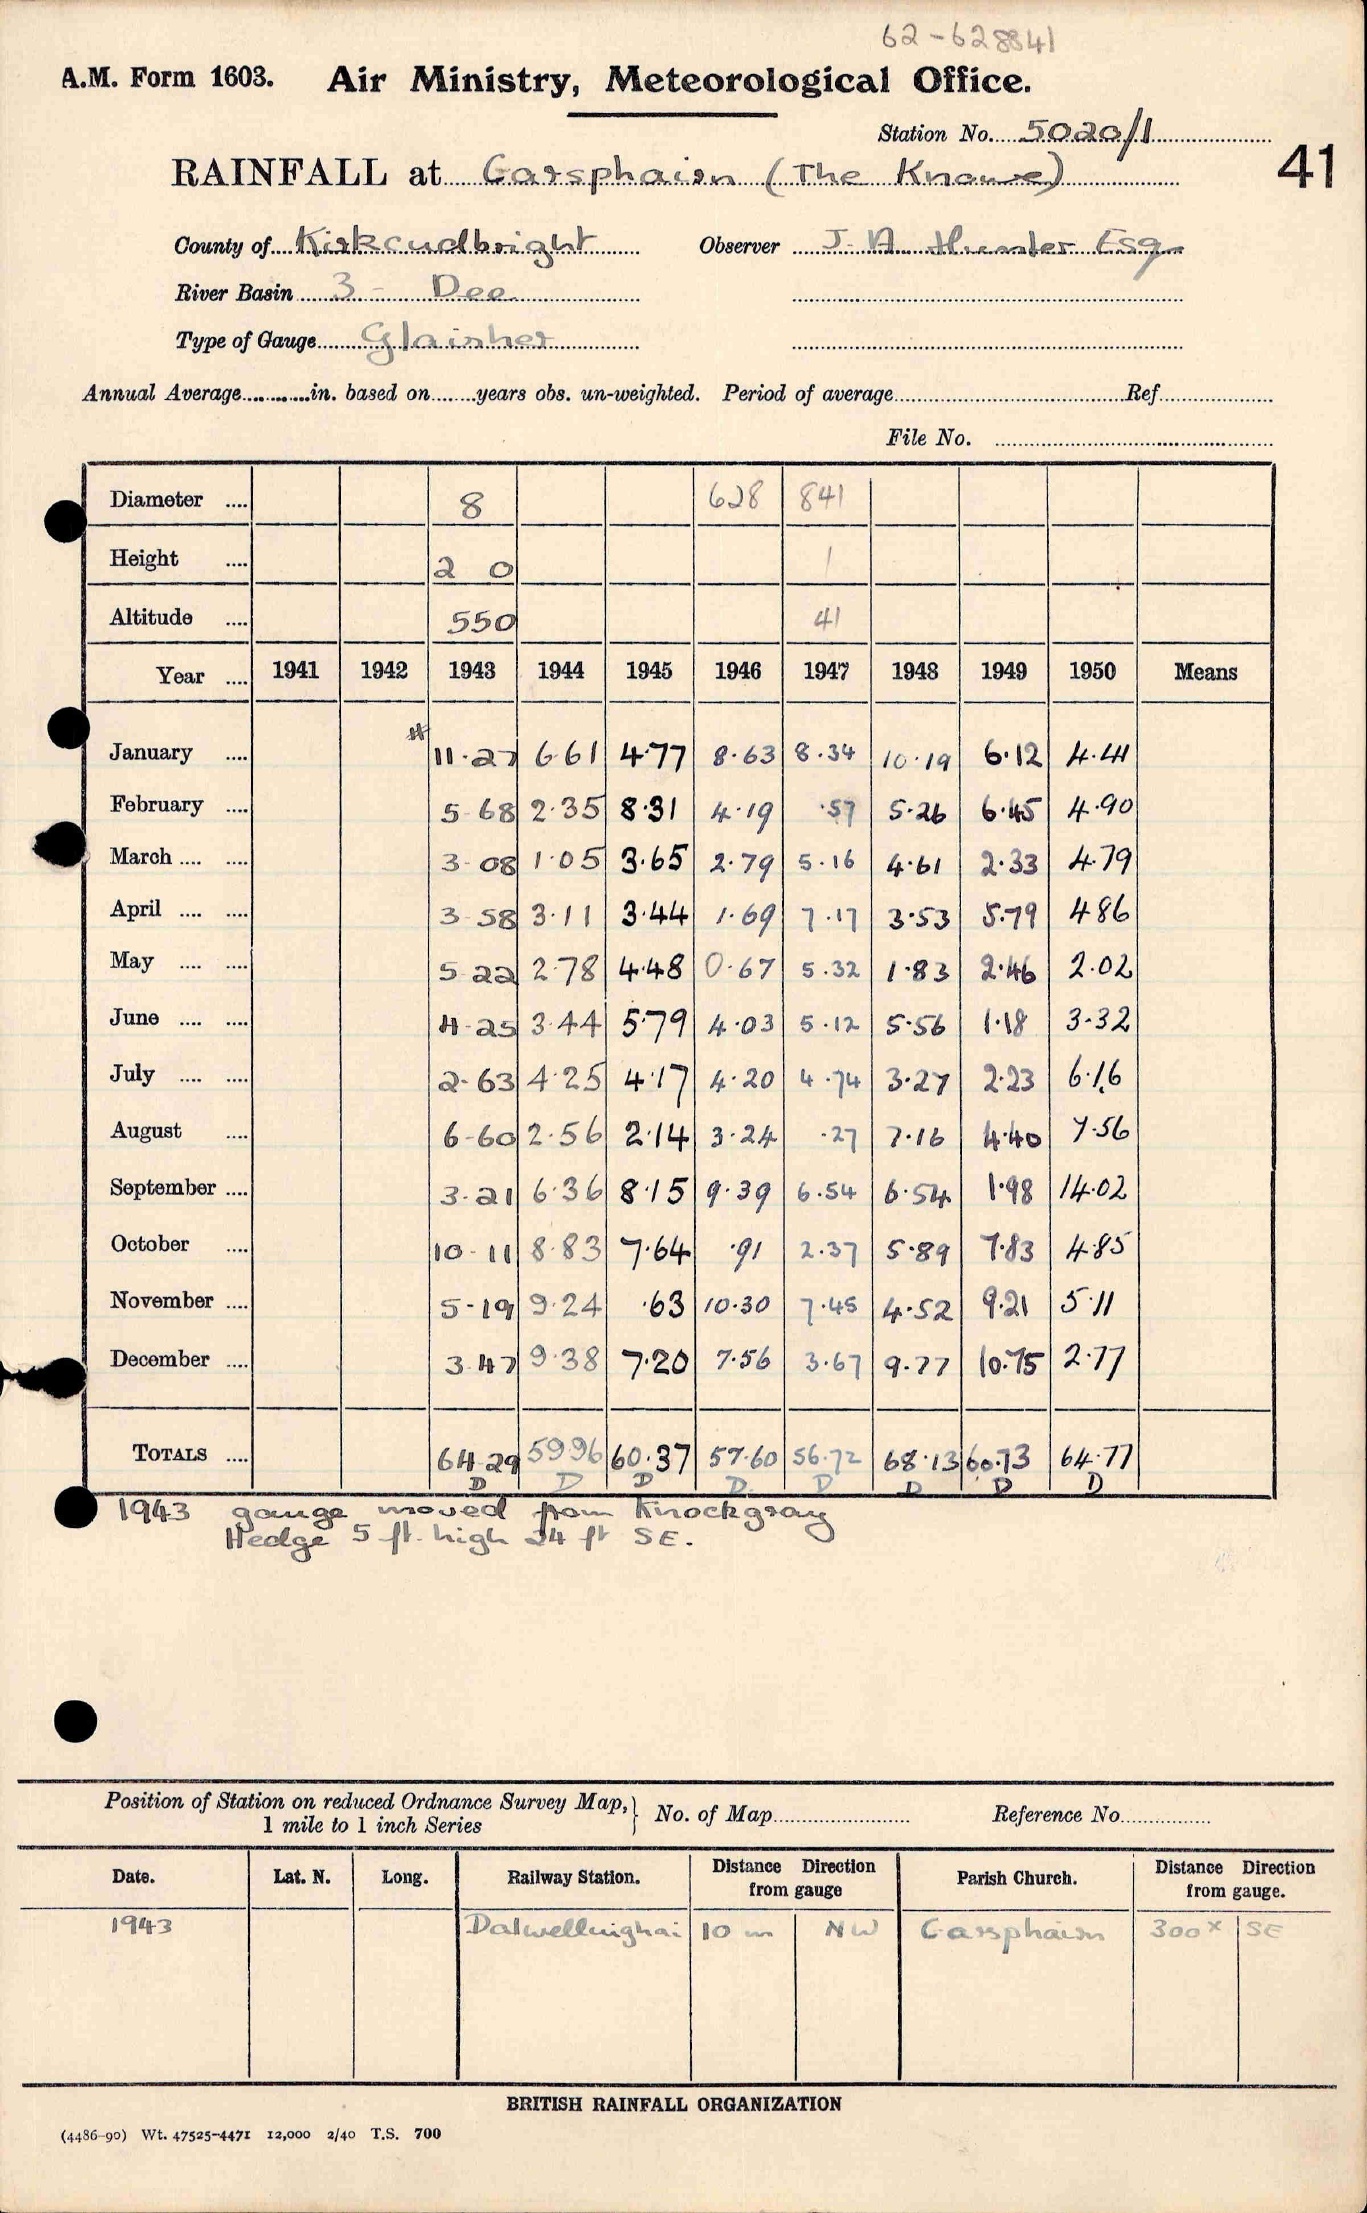 62-628841
A.M. Form 1603. Air Ministry, Meteorological Office.
Station No. 5020/1
41
RAINFALL at Carsphairn (The Knowe)
County of Kirkcudbright Observer J. A. Hunter Esq
River Basin 3 - Dee
Type of Gauge Glaisher
Annual Average in. based on years obs. un-weighted. Period of average Ref
File No.
Diameter .... 8 628 841
Height .... 2 0 1
Altitude .... 550 41
Year .... 1941 1942 1943 1944 1945 1946 1947 1948 1949 1950 Means
January .... # 11.27 6.61 4.77 8.63 8.34 10.19 6.12 4.41
February .... 5.68 2.35 8.31 4.19 .57 5.26 6.45 4.90
March .... .... 3.08 1.05 3.65 2.79 5.16 4.61 2.33 4.79
April .... .... 3 58 3.11 3.44 1.69 7.17 3.53 5.79 4.86
May .... .... 5.22 2.78 4.48 0.67 5.32 1.83 2.46 2.02
June .... .... 4.25 3.44 5.79 4.03 5.12 5.56 1.18 3.32
July .... .... 2.63 4.25 4.17 4.20 4.74 3.27 2.23 6.16
August .... 6.60 2.56 2.14 3.24 .27 7.16 4.40 7.56
September .... 3.21 6.36 8.15 9.39 6.54 6.54 1.98 14.02
October .... 10.11 8.83 7.64 .91 2.37 5.89 7.83 4.85
November .... 5.19 9.24 .63 10.30 7.45 4.52 9.21 5.11
December .... 3.47 9.38 7.20 7.56 3.67 9.77 10.75 2.77
TOTALS .... 64.29 59.96 60.37 57.60 56.72 68.13 60.73 64.77
D D D D D D D D
1943 gauge moved from Knockgray
Hedge 5 ft. high 24 ft SE.
Position of Station on reduced Ordnance Survey Map, 1 mile to 1 inch Series } No. of Map Reference No.
Date. Lat. N. Long. Railway Station. Distance Direction from gauge Parish Church. Distance Direction from gauge.
1943 Dalwellinghai 10 m NW Carsphairn 300x SE
BRITISH RAINFALL ORGANIZATION
(4486-90) Wt. 47525-4471 12,000 2/40 T.S. 700